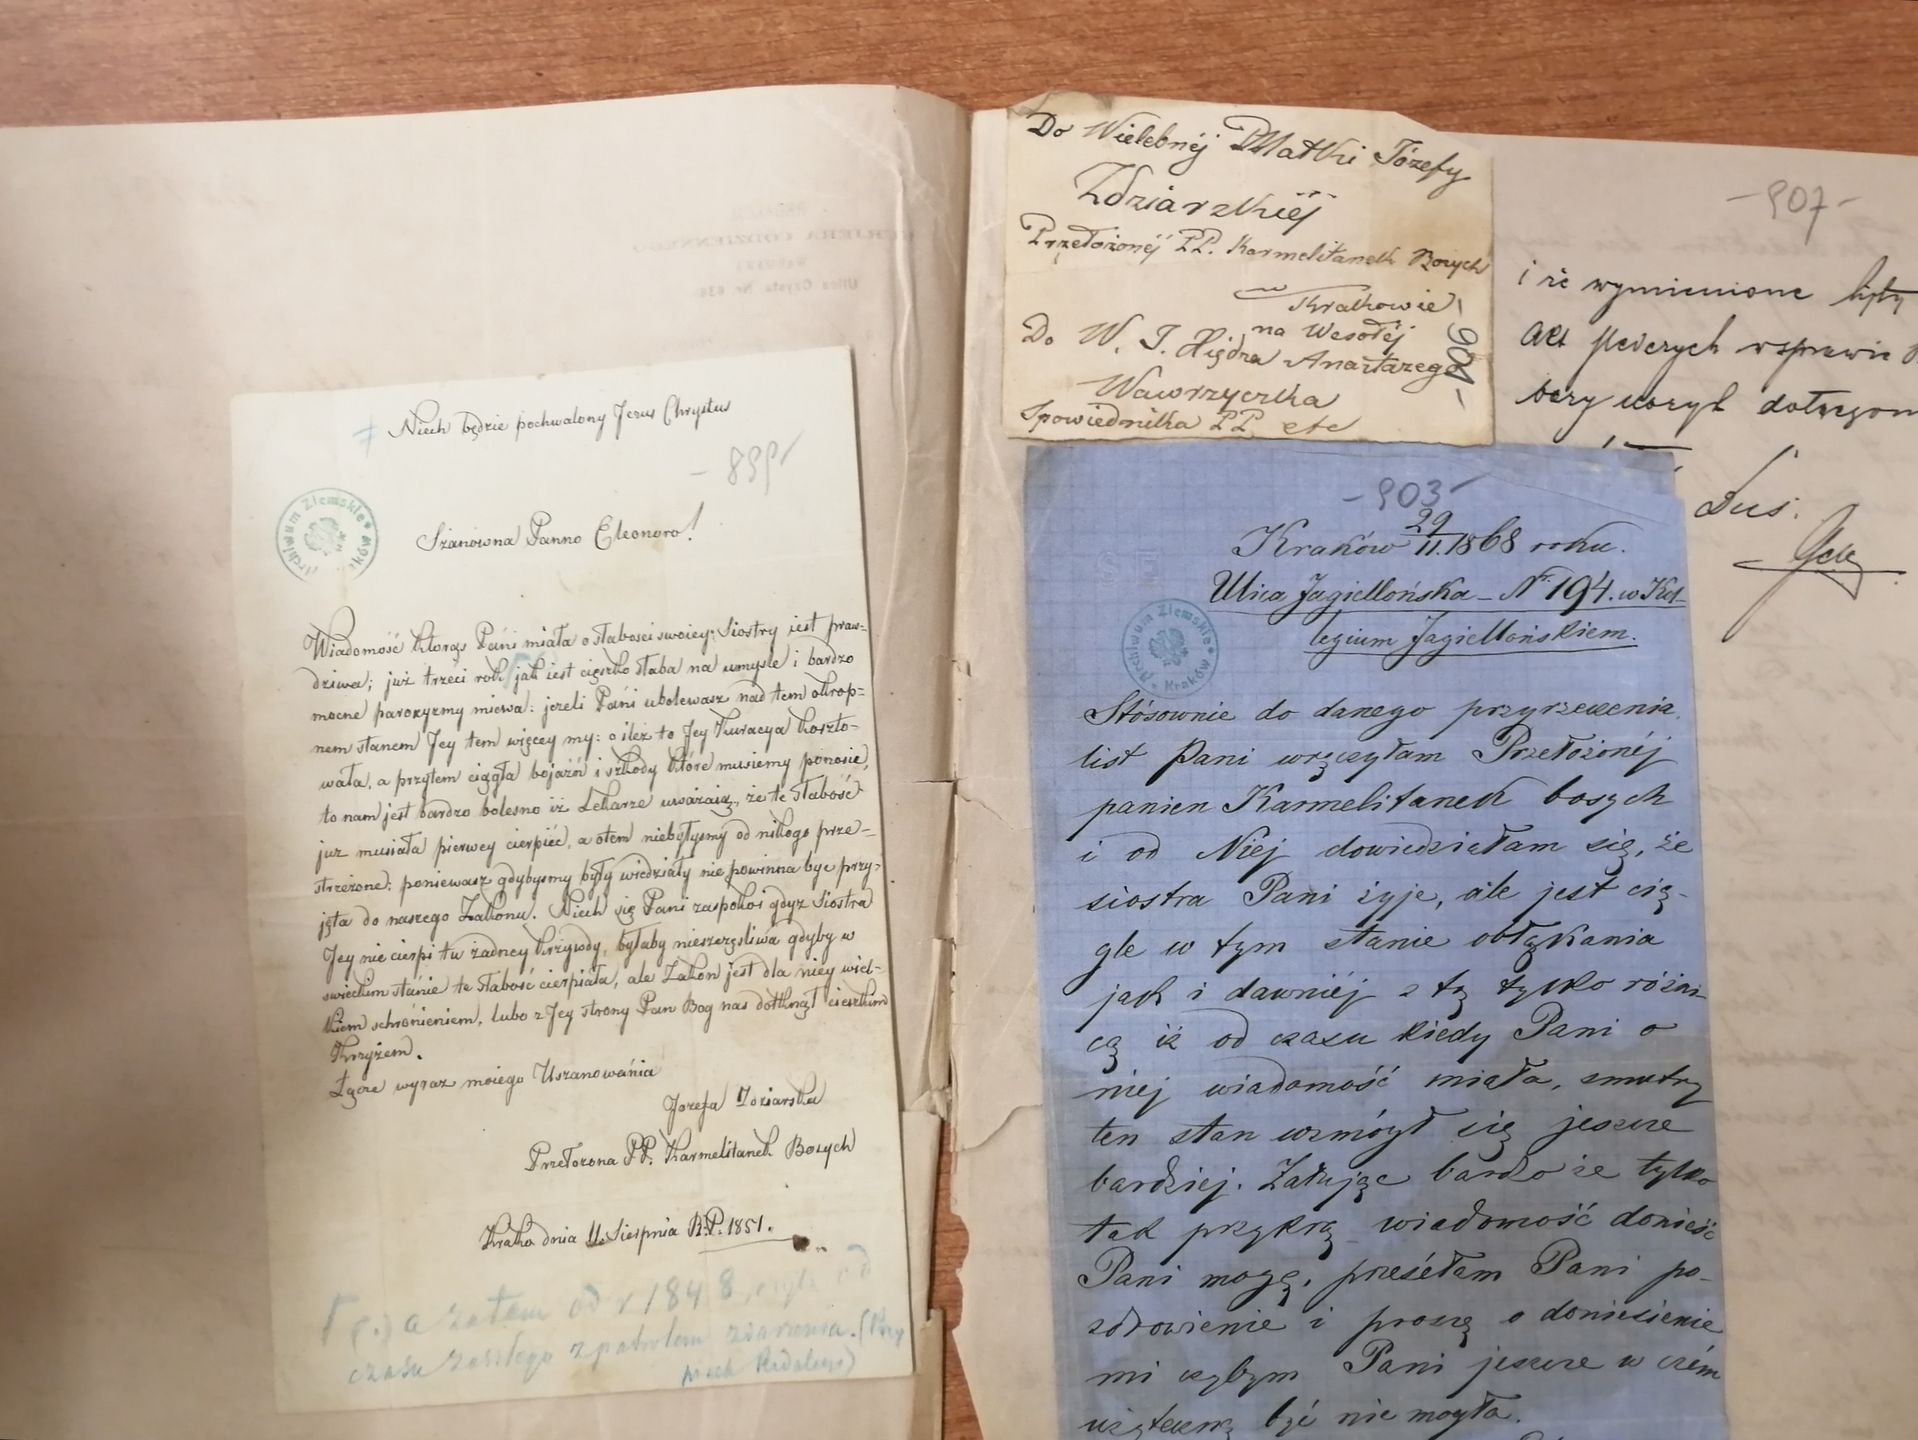 Niech będzie pochwalony Jezus Chrystus
- 899 -
Archiwum Ziemskie
Szanowna Panno Eleonoro!
Wiadomość którąś Pani miała o słabości swoiey: Siostry iest praw-
dziwa; już trzeci rok jak iest cięszko słaba na umyśle i bardzo
mocne paroxyzmy miewa: jeżeli Pani ubolewasz nad tem okrop-
nem stanem Jey tem więcey my: o ileż to Jey Kuracya koszto-
wała, a przytem ciągła bojaźń i szkody które musiemy ponosić,
to nam jest bardzo bolesno iż Lekarze uważaią, że te słabość
już musiała pierwey cierpieć, a otem niebyłyśmy od nikogo prze-
strzeżone: ponieważ gdybyśmy były wiedziały nie powinna być przy-
jęta do naszego Zakonu. Niech się Pani zaspokoi gdyż Siostra
Jey nie cierpi tu żadney krzywdy, byłaby nieszczęśliwa gdyby w
swieckim stanie te słabość cierpiała, ale Zakon jest dla niey wiel-
kiem schronieniem, lubo z Jey strony Pan Bog nas dotknął cieszkim
Krzyżem.
Łączę wyraz moiego Uszanowania
Jozefa Zdziarska
Przełożona PP. Karmelitanek Bosych
Krako dnia 11. Sierpnia R.P. 1851.
a zatem od r 1848, czyli od
czasu zaszłego zpatrolem zdarzenia. (Przy
pisek Redakcyi)
Do Wielebnéj Matki Józefy
Zdziarzkiéj
Przełożonéj PP. Karmelitanek Bosych
w Krakowie
na Wesołéj
Do W. J. Xiędza Anastazego
Wawrzyczka
Spowiednika PP. etc
- 901 -
- 907 -
i że wymienione listy
akt
bezy
Lus.
- 903 -
Kraków 29/11.1868 roku.
Ulica Jagiellońska - Nr 194. w Kol-
legium Jagiellońskiem.
Archiwum Ziemskie Kraków
Stósownie do danego przyrzeczenia
list Pani wręczyłam Przełożonéj
panien Karmelitanek bosych
i od Niéj dowiedziałam się, że
siostra Pani żyje, ale jest cią-
gle w tym stanie obłąkania
jak i dawniéj z tą tylko różni-
cą iż od czasu kiedy Pani o
niej wiadomość miała, smutny
ten stan wzmógł się jeszcze
bardziej. Żałując bardzo że tylko
tak przykrą wiadomość donieść
Pani mogę, przeséłam Pani po-
zdrowienie i proszę o doniesienie
mi czybym Pani jeszcze w czém
użyteczną być nie mogła.